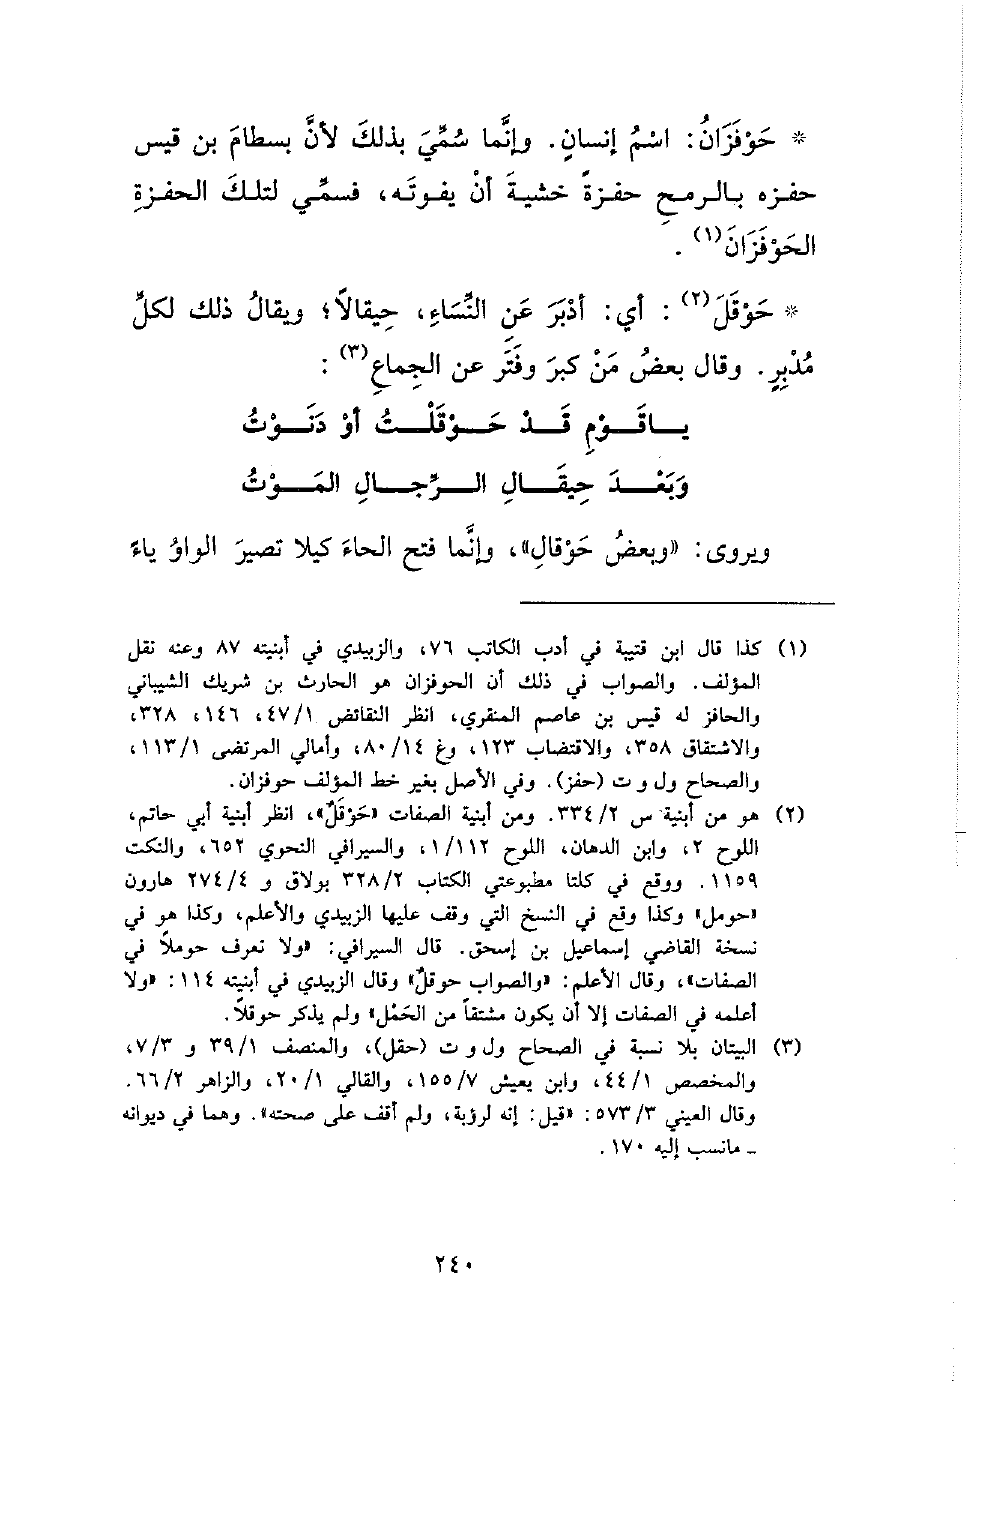 * حَوْفَزَانُ: اسْمُ إنسانٍ. وإنَّما سُمِّيَ بذلكَ لأنَّ بسطامَ بن قيس
حفزه بالرمحِ حفزةً خشيةَ أنْ يفوتَه، فسمِّي لتلكَ الحفزةِ
الحَوْفَزَانَ(١) .
* حَوْقَلَ(٢) : أي: أدْبَرَ عَنِ النِّسَاءِ، حِيقالاً؛ ويقالُ ذلك لكلِّ
مُدْبِرٍ. وقال بعضُ مَنْ كبرَ وفَتَر عن الجِماعِ(٣) :
ياقَوْمِ قَدْ حَوْقَلْتُ أوْ دَنَوْتُ
وَبَعْدَ حِيقَالِ الرِّجالِ المَوْتُ
ويروى: «وبعضُ حَوْقالِ»، وإنَّما فتح الحاءَ كيلا تصيرَ الواوُ ياءً
(١) كذا قال ابن قتيبة في أدب الكاتب ٧٦، والزبيدي في أبنيته ٨٧ وعنه نقل
المؤلف. والصواب في ذلك أن الحوفزان هو الحارث بن شريك الشيباني
والحافز له قيس بن عاصم المنقري، انظر النقائض ٤٧/١، ١٤٦، ٣٢٨،
والاشتقاق ٣٥٨، والاقتضاب ١٢٣، وغ ٨٠/١٤، وأمالي المرتضى ١١٣/١،
والصحاح ول وت (حفز). وفي الأصل بغير خط المؤلف حوفزان.
(٢) هو من أبنية س ٣٣٤/٢. ومن أبنية الصفات «حَوْقَلٌ»، انظر أبنية أبي حاتم،
اللوح ٢، وابن الدهان، اللوح ١/١١٢، والسيرافي النحوي ٦٥٢، والنكت
١١٥٩. ووقع في كلتا مطبوعتي الكتاب ٣٢٨/٢ بولاق و ٢٧٤/٤ هارون
«حومل» وكذا وقع في النسخ التي وقف عليها الزبيدي والأعلم، وكذا هو في
نسخة القاضي إسماعيل بن إسحق. قال السيرافي: «ولا نعرف حوملاً في
الصفات»، وقال الأعلم: «والصواب حوقلٌ» وقال الزبيدي في أبنيته ١١٤: «ولا
أعلمه في الصفات إلا أن يكون مشتقاً من الحَمْل» ولم يذكر حوقلاً.
(٣) البيتان بلا نسبة في الصحاح ول وت (حقل)، والمنصف ٣٩/١ و ٧/٣،
والمخصص ٤٤/١، وابن يعيش ١٥٥/٧، والقالي ٢٠/١، والزاهر ٦٦/٢.
وقال العيني ٥٧٣/٣: «قيل: إنه لرؤبة، ولم أقف على صحته». وهما في ديوانه
ـ مانسب إليه ١٧٠.
٢٤٠